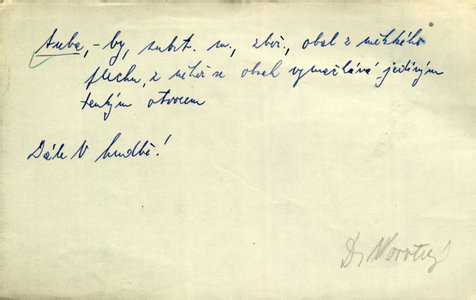 tuba, -by, subst. ž., zbož., obal z měkkého
plechu, z něhož se obsah vymačkává jediným
tenkým otvorem
Dále v hudbě!
Dr Novotný